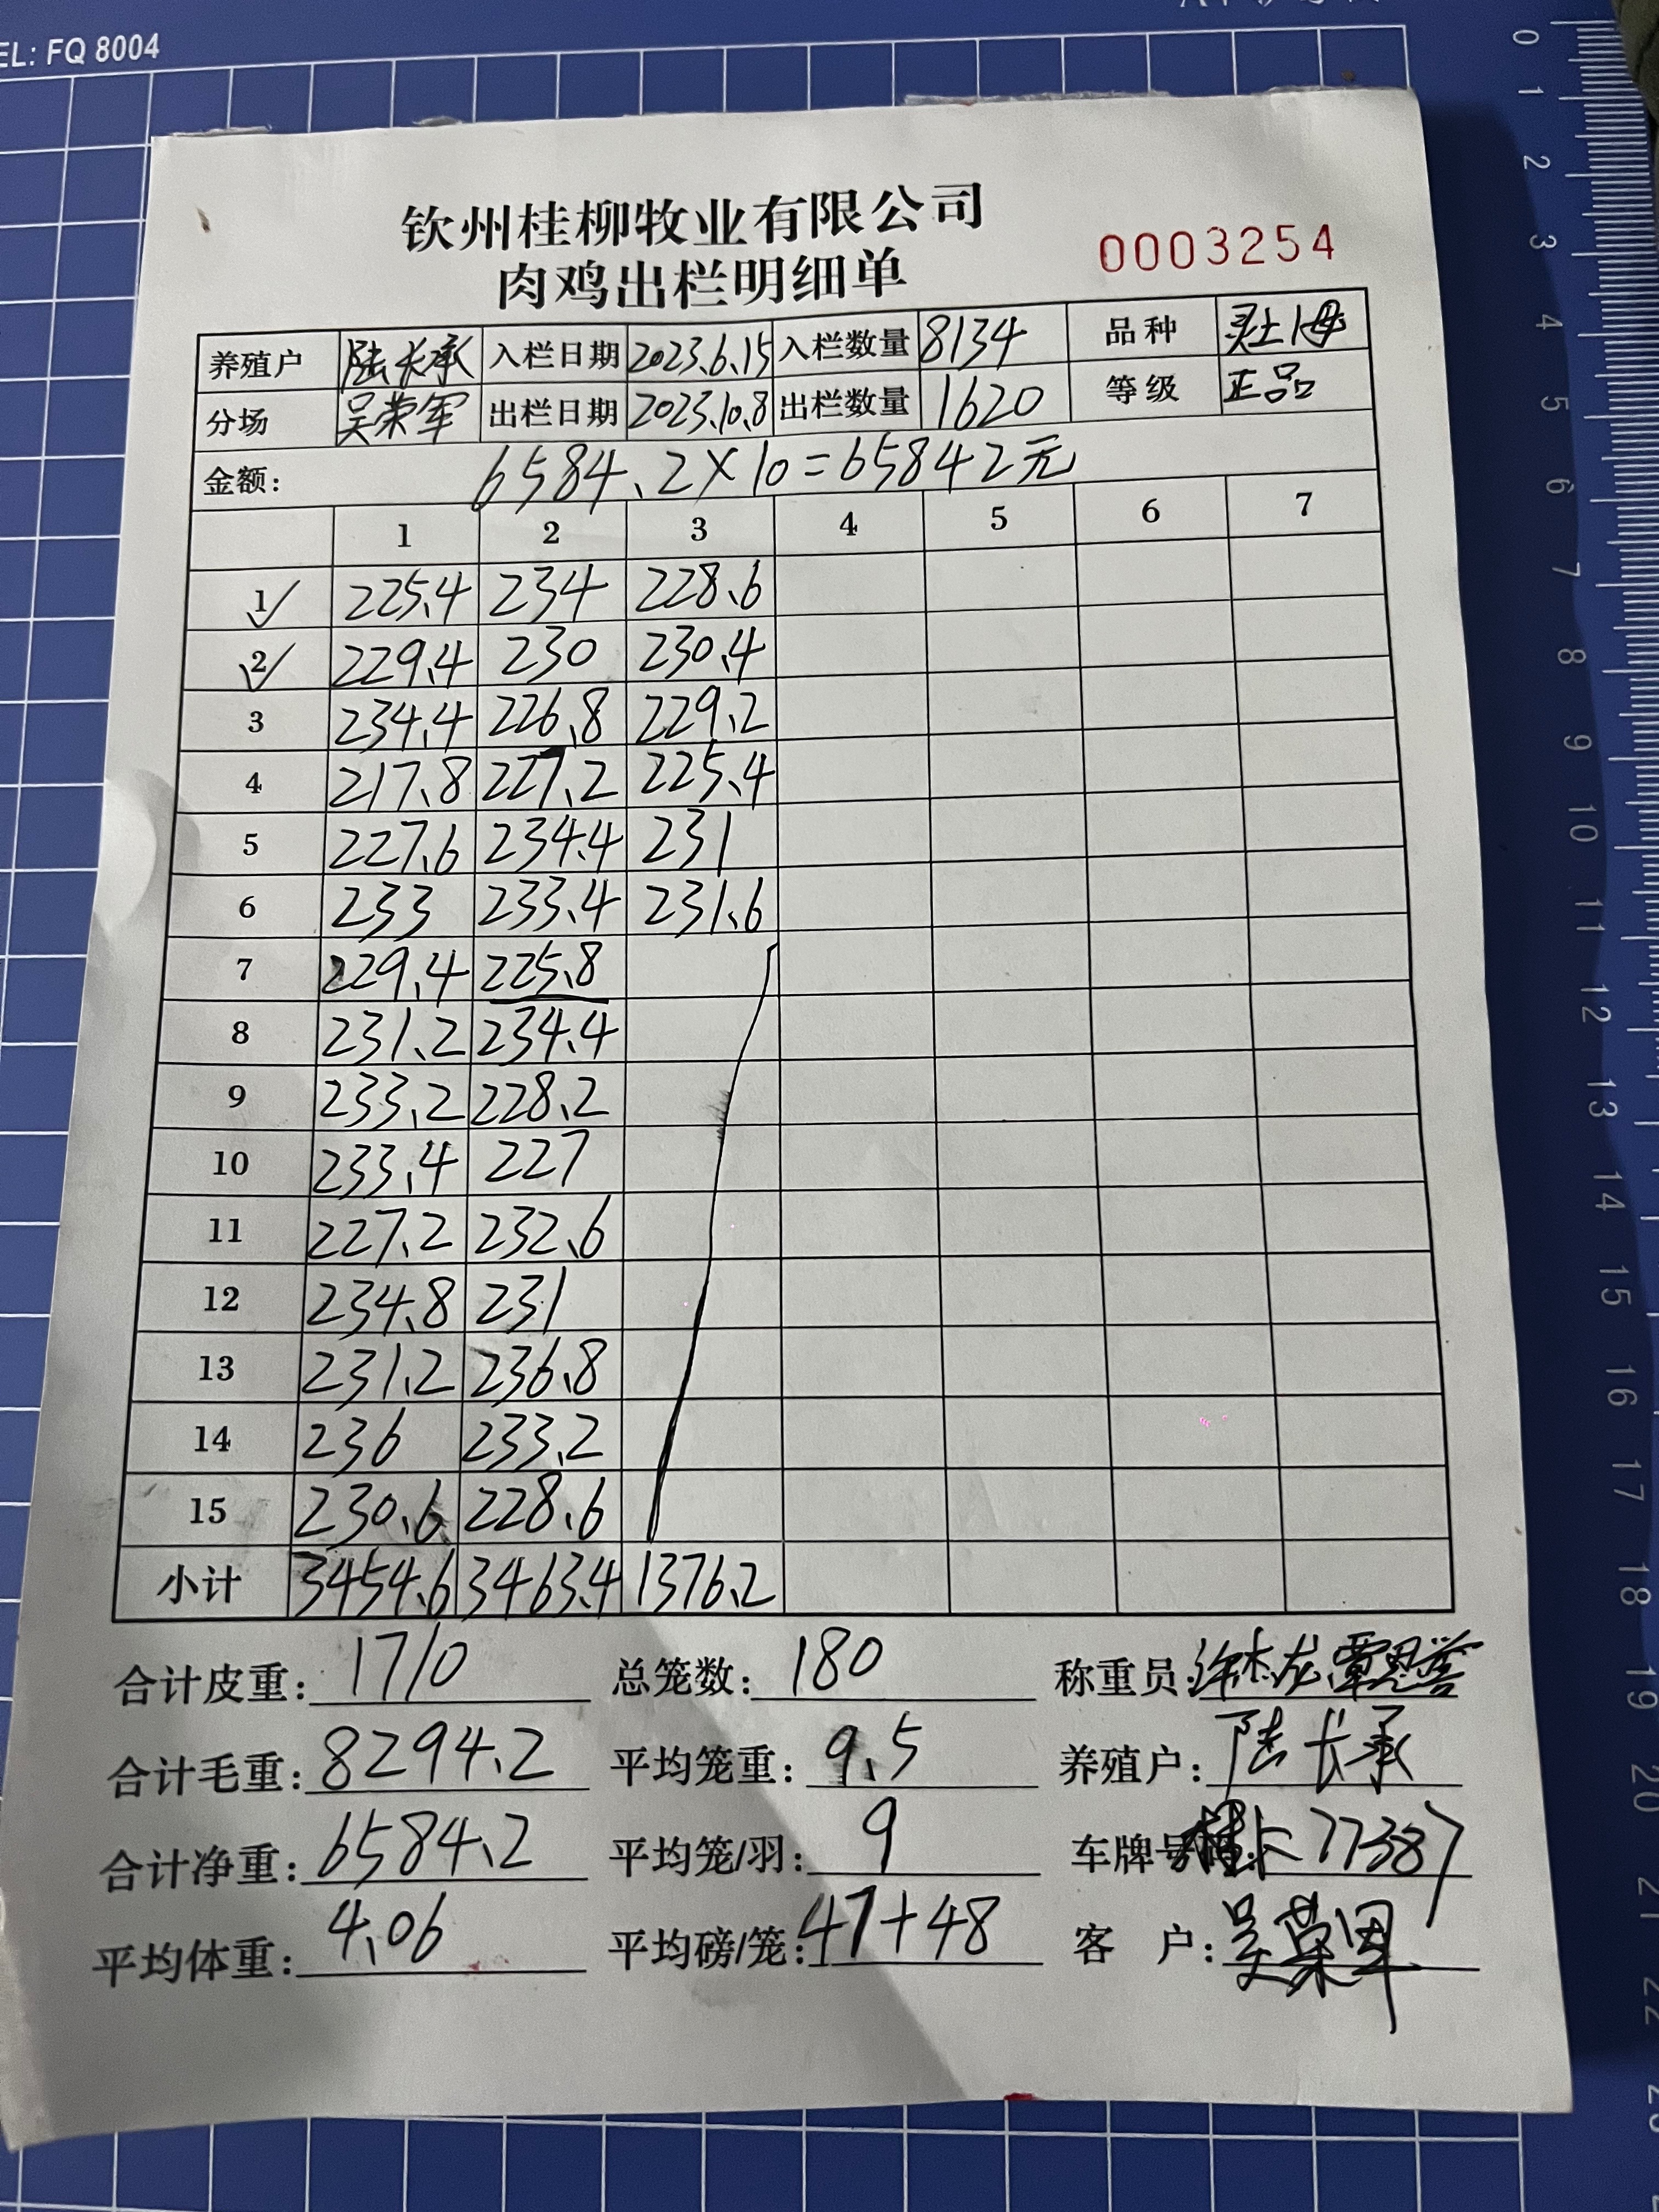 EL: FQ 8004
钦州桂柳牧业有限公司
肉鸡出栏明细单
0003254
养殖户 陆长承 入栏日期 2023.6.15 入栏数量 8134 品种 灵土1母
分场 吴荣军 出栏日期 2023.10.8 出栏数量 1620 等级 正品
金额: 6584.2×10=65842元
1 2 3 4 5 6 7
1✓ 225.4 234 228.6
2✓ 229.4 230 230.4
3 234.4 226.8 229.2
4 217.8 227.2 225.4
5 227.6 234.4 231
6 233 233.4 231.6
7 229.4 225.8
8 231.2 234.4
9 233.2 228.2
10 233.4 227
11 227.2 232.6
12 234.8 231
13 231.2 236.8
14 236 233.2
15 230.6 228.6
小计 3454.6 3463.4 1376.2
合计皮重: 1710 总笼数: 180 称重员:
合计毛重: 8294.2 平均笼重: 9.5 养殖户: 陆长承
合计净重: 6584.2 平均笼/羽: 9 车牌号 77387
平均体重: 4.06 平均磅/笼: 47+48 客 户: 吴荣军
0
1
2
3
4
5
6
7
8
9
10
11
12
13
14
15
16
17
18
19
20
21
22